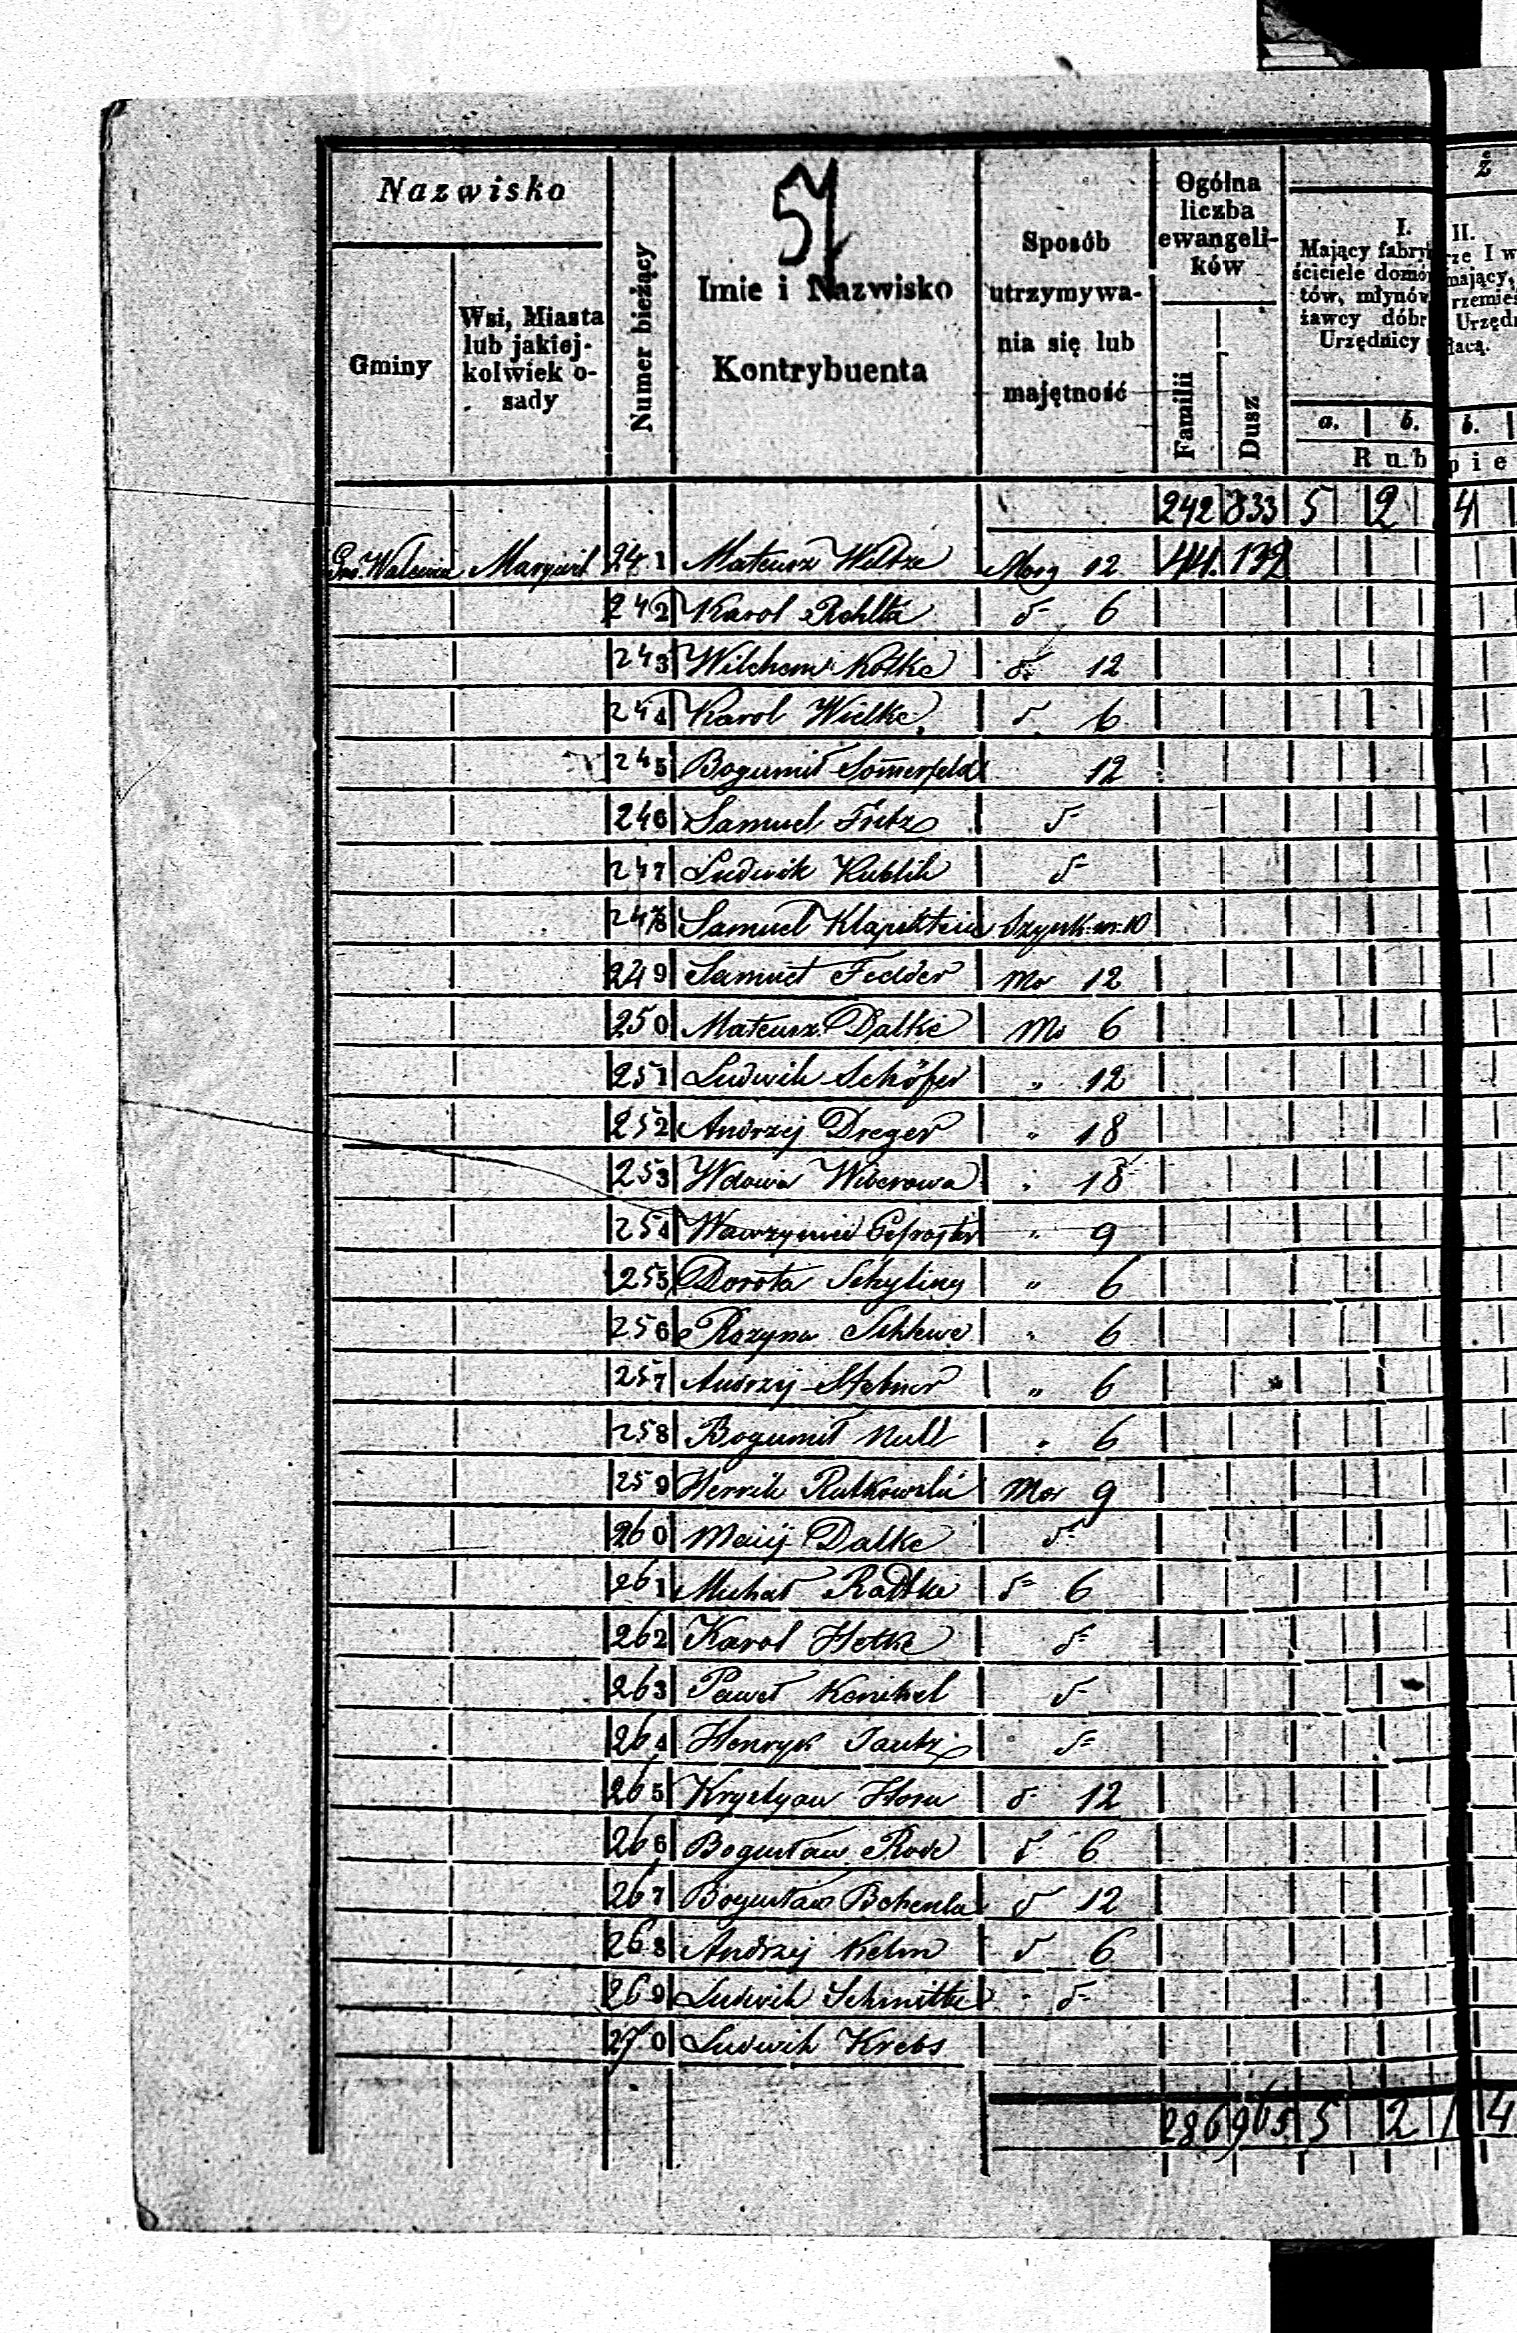 Nazwisko
Gminy
Wsi, Miasta
lub jakiej-
kolwiek o-
sady
Numer bieżący
51
Imie i Nazwisko
Kontrybuenta
Sposób
utrzymywa-
nia się lub
majętność
Ogólna
liczba
ewangeli-
ków
Familii
Dusz
I.
Mający fabry
ściciele domó
tów, młynów
żawcy dóbr
Urzędnicy
a. b.
Rub
ż
II.
rze I w
mający,
rzemieś
Urzęd
płacą.
b.
pie
242 833 5 2 4
241 Mateusz Wiltze Morg 12 44. 132
242 Karol Rehlta d- 6
243 Wilchem Kolke d- 12
244 Karol Wielke d- 6
245 Bogumił Somerfeld 12
246 Samuel Fritz d-
247 Ludwik Kublik d-
248 Samuel Szynk. m. 10
249 Samuel Fedder Mor 12
250 Mateusz Dalke Mo 6
251 Ludwik Schöfer " 12
252 Andrzej Dreger " 18
253 Wdowa Wiberowa " 18
254 Wawrzyniec " 9
255 Dorota Schyling " 6
256 Rozyna Schlewe " 6
257 Andrzej Stebner " 6
258 Bogumił Null " 6
259 Henrik Rutkowski Mor 9
260 Maciej Dalke d-
261 Michał Radtke d- 6
262 Karol Hetke d-
263 Paweł Kenikel d-
264 Henryk Jautz d-
265 Krystyan Horn d- 12
266 Bogusław Rode d- 6
267 Bogusław d- 12
268 Andrzej Kelm d- 6
269 Ludwik Schmitke d-
270 Ludwik Krebs
286 965 5 2 1 4